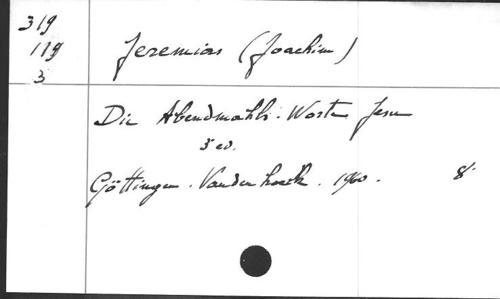 319
119
3
Jeremias (Joachim)
Die Abendmahls-Worte Jesu
3 ed.
Göttingen. Vandenhoeck. 1960. 8°